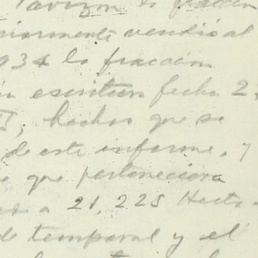 la fracción
vendió al
934 la fracción
escritura fecha 2
II, hechos que se
de este informe, y
que perteneciera
a 21,225 Hects
de temporal y el